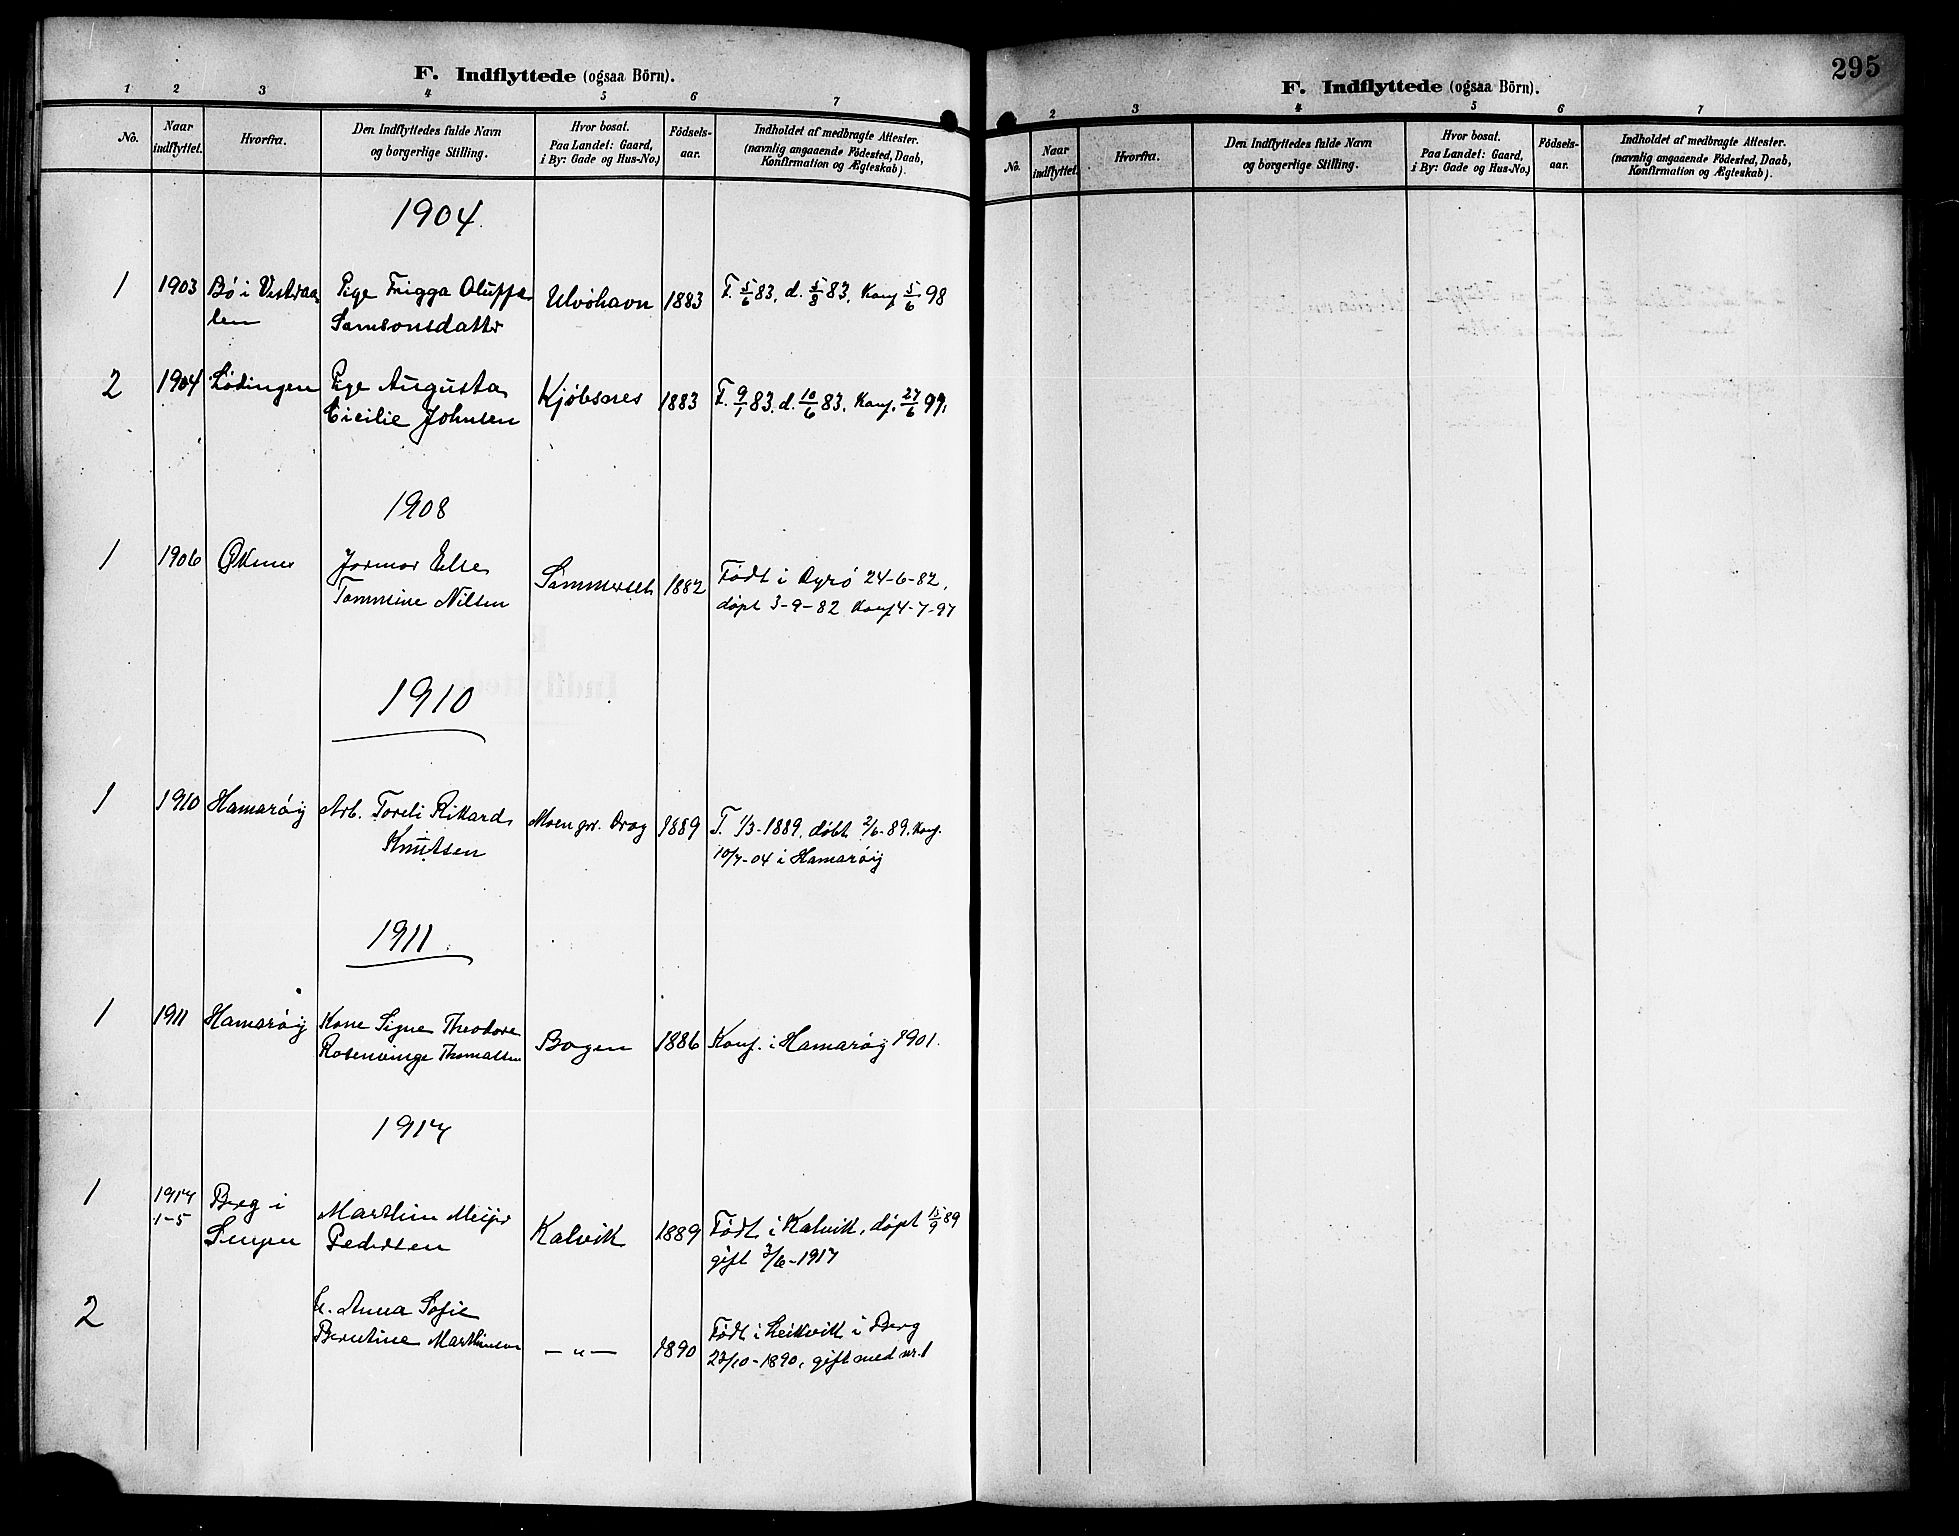 F. Indflyttede (ogsaa Börn).
1 2 3 4 5 6 7
No. Naar indflyttet. Hvorfra. Den Indflyttedes fulde Navn og borgerlige Stilling. Hvor bosat. Paa Landet: Gaard, i By: Gade og Hus-No.) Fødsels-aar. Indholdet af medbragte Attester. (navnlig angaaende Födested, Daab, Konfirmation og Ægteskab).
1904.
1 1903 Bö i Vesteraa- Pige Frigga Oluffa Ulvöhavn 1883 F. 5/6 83, d. 5/8 83, Konf 5/6 98
len Samsonsdatter
2 1904 Lödingen Pige Augusta Kjöbsnes 1883 F. 9/1 83. d. 10/6 83. Konf. 27/6 99.
Cicilie Johnsen
1908
1 1906 Øksnes Jormor Else Sommerset 1882 Født i Dyrö 24-6-82,
Tommine Nilsen døpt 3-9-82 Konf 4-7-97
1910
1 1910 Hamaröy Arb. Toreli Rikard Moen pr. Drag 1889 F. 1/3-1889, döbt 2/6-89. Konf.
Knutsen 10/7-04 i Hamaröy
1911
1 1911 Hamaröy Kone Signe Theodore Bogen 1886 Konf. i Hamaröy 1901.
Rosenvinge Thomassen
1917
1 1917 Berg i Marthin Meijer Kalvik 1889 Født i Kalvik, døpt 15/9 89
1-5 Senjen Pedersen gift 3/6-1917
2 h. Anna Sofie
Berntine Marthinsen — „ — 1890 Født i Leikvik i Berg
23/10-1890, gift med nr. 1
295
F. Indflyttede (ogsaa Börn).
2 3 4 5 6 7
No. Naar indflyttet. Hvorfra. Den Indflyttedes fulde Navn og borgerlige Stilling. Hvor bosat. Paa Landet: Gaard, i By: Gade og Hus-No.) Fødsels-aar. Indholdet af medbragte Attester. (navnlig angaaende Födested, Daab, Konfirmation og Ægteskab).